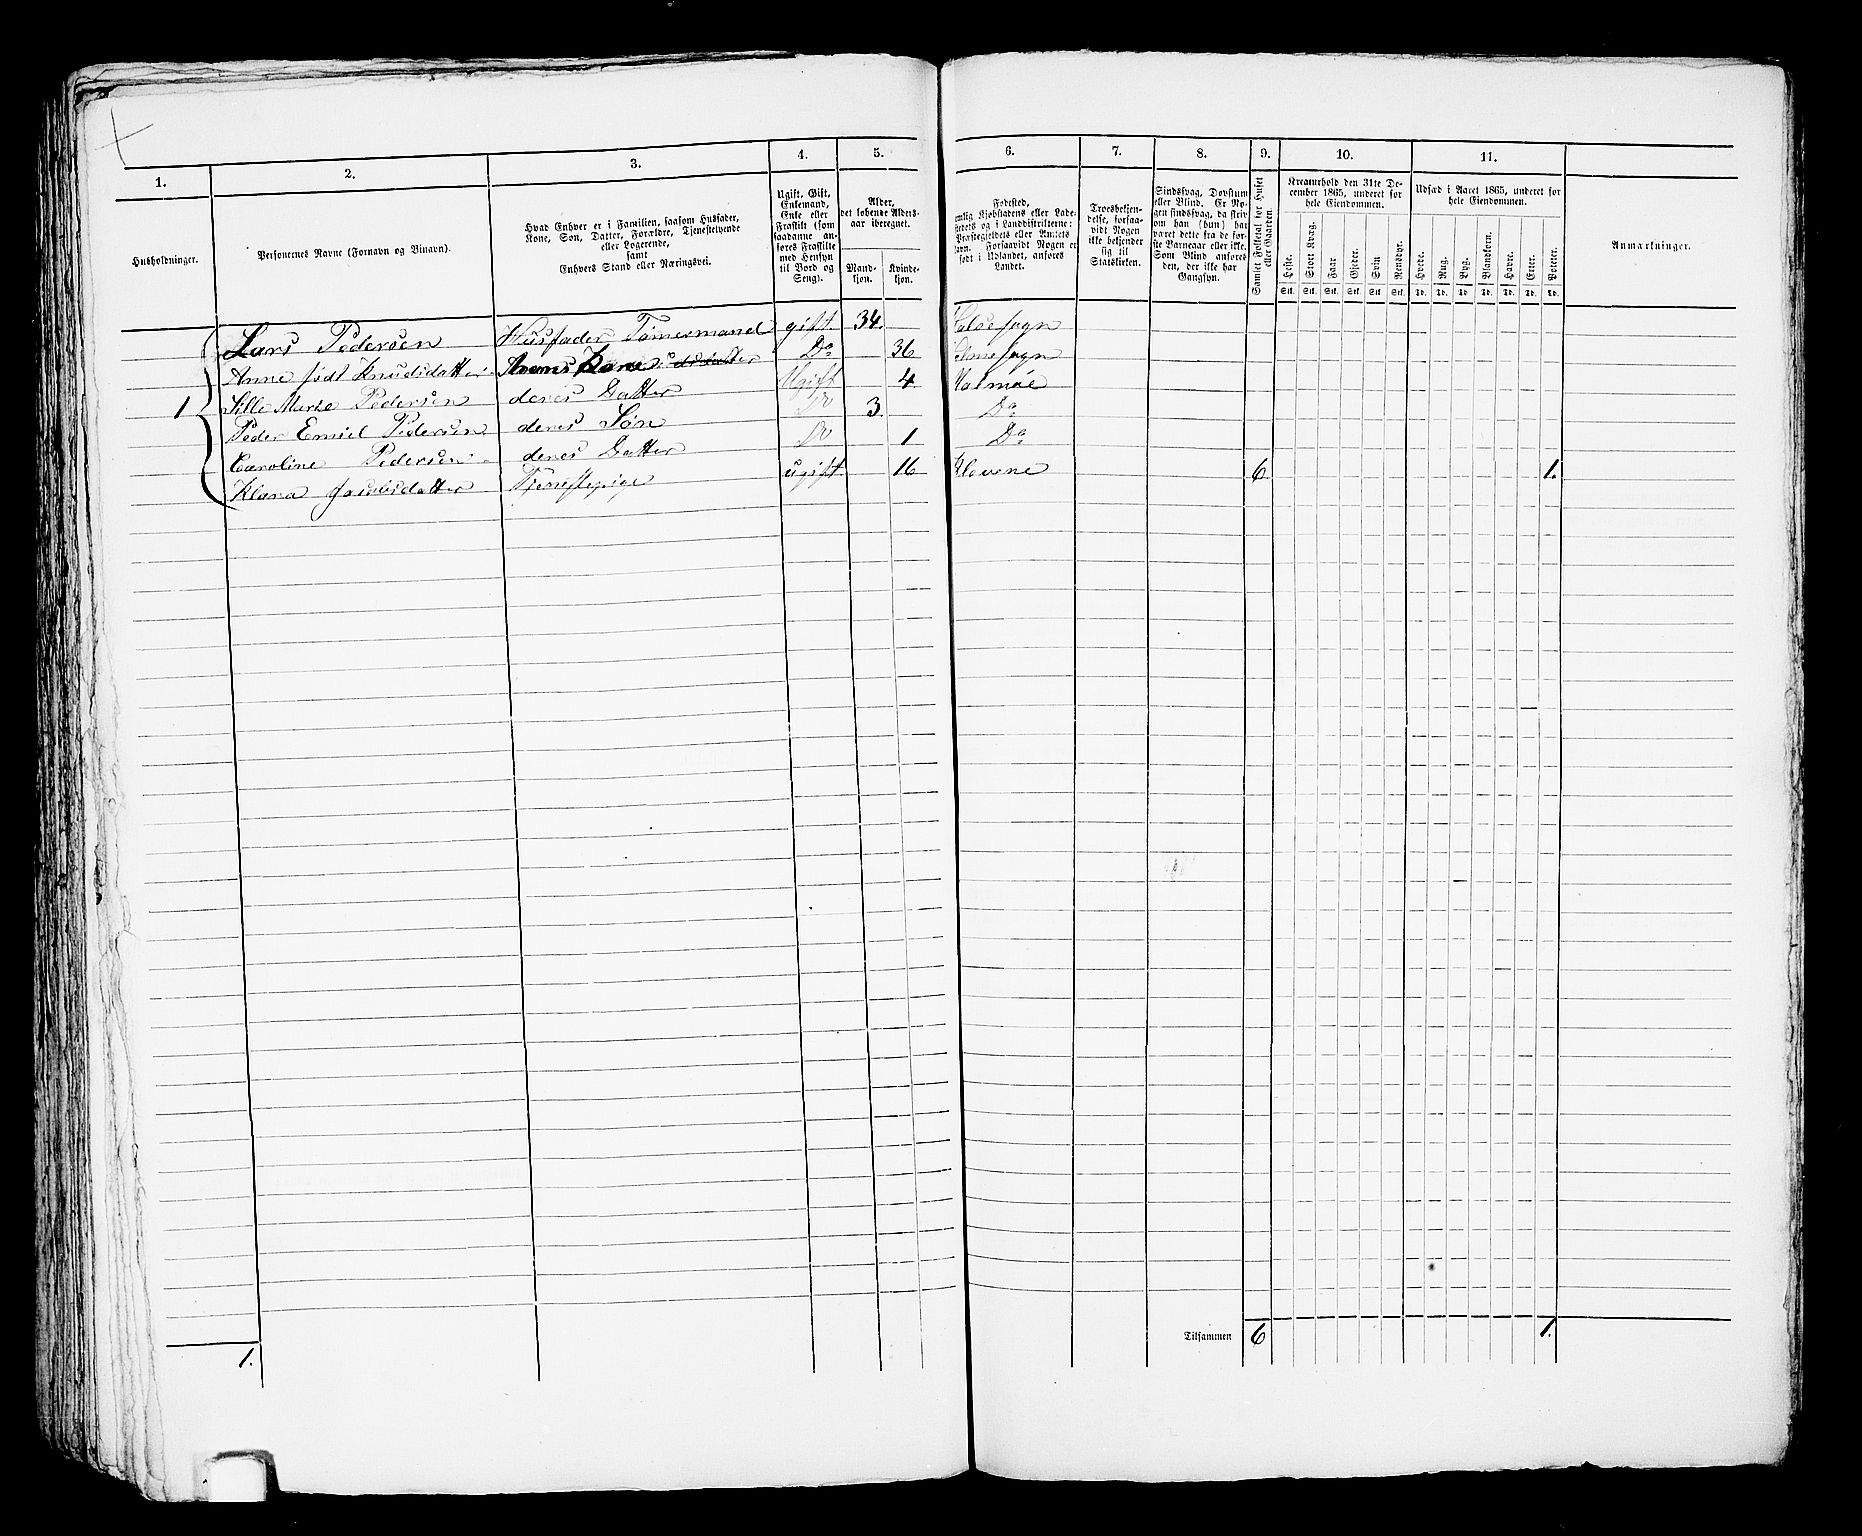 1. 2. 3. 4. 5. 6. 7. 8. 9. 10. 11.
Husholdninger.
Personernes Navne (Fornavn og Binavn).
Hvad Enhver er i Familien, saasom Husfader,
Kone, Søn, Datter, Forældre, Tjenestetyende
eller Logerende,
samt
Enhvers Stand eller Næringsvei.
Ugift, Gift,
Enkemand,
Enke eller
Fraskilt (som
saadanne an-
føres Fraskilte
med Hensyn
til Bord og
Seng).
Alder,
det løbende Alders-
aar iberegnet.
Mand-
kjøn.
Kvinde-
kjøn.
Fødested,
emlig Kjøbstadens eller Lade-
stedets og i Landdistrikterne:
Præstegjeldets eller Annexets
Navn. Forsaavidt Nogen er
født i Udlandet, anføres
Landet.
Troesbekjen-
delse, forsaa-
vidt Nogen
ikke bekjender
sig til
Statskirken.
Sindssvag, Døvstum
eller Blind. Er No-
gen sindssvag, da skriv
om han (hun) har
været dette fra de før-
ste Barneaar eller ikke.
Som Blind anføres
den, der ikke har
Gangsyn.
Samlet Folketal for Huset
eller Gaarden.
Kreaturhold den 31te De-
cember 1865, underet for
hele Eiendommen.
Heste. Stort Kvæg. Faar. Gjeter. Svin Rensdyr.
Stk. Stk. Stk. Stk. Stk. Stk.
Udsæd i Aaret 1865, underet for
hele Eiendommen.
Hvede. Rug. Byg. Blandkorn. Havre. Erter. Poteter.
Td. Td. Td. Td. Td. Td. Td.
Anmærkninger.
Lars Pedersen Husfader Tømermand gift. 34. Halse sogn
Anne født Knudsdatter Hans Kone Do 36 sogn
1 Sille Marie Pedersen deres Datter Ugift 4 Halmøe
Peder Emiel Pedersen deres Søn Do 3. Do
Caroline Pedersen deres Datter Do 1 Do
Klara Jacobsdatter Tjenestepige ugift. 16 6. 1.
Tilsammen 6 1.
1.